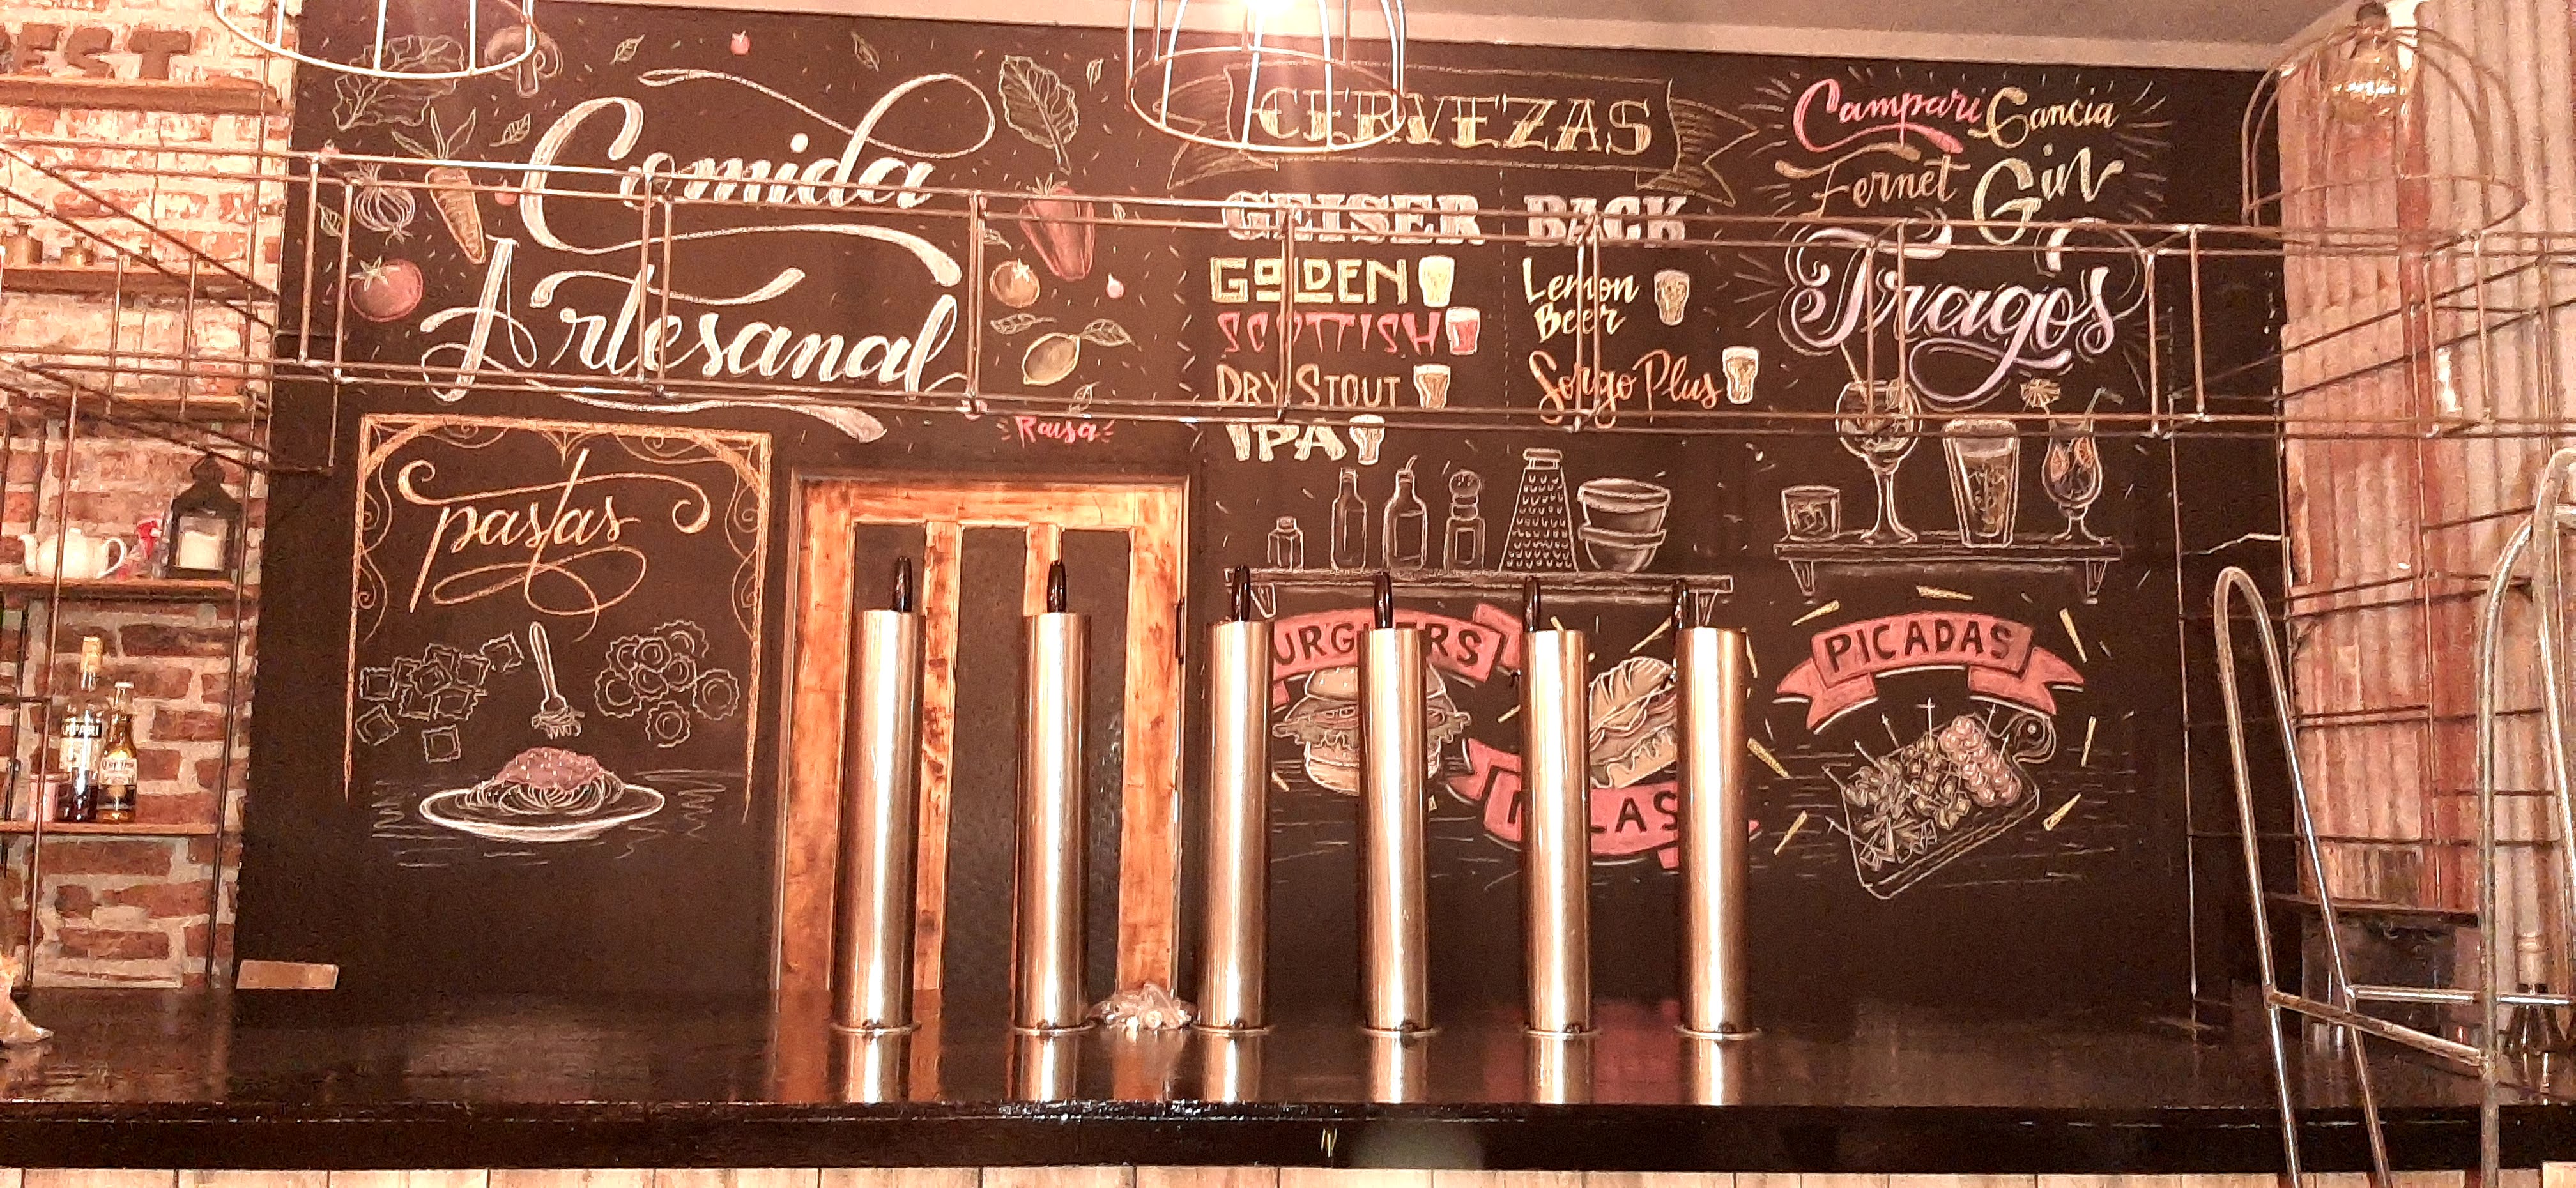 EST
Comida
Artesanal
Raisa
pastas
CERVEZAS
GEISER
GOLDEN
SCOTTISH
DRY STOUT
IPA
BACK
Lemon
Beer
Sorgo Plus
Campari Gancia
Fernet Gin
Tragos
URGUERS
LAS
PICADAS
MPARI